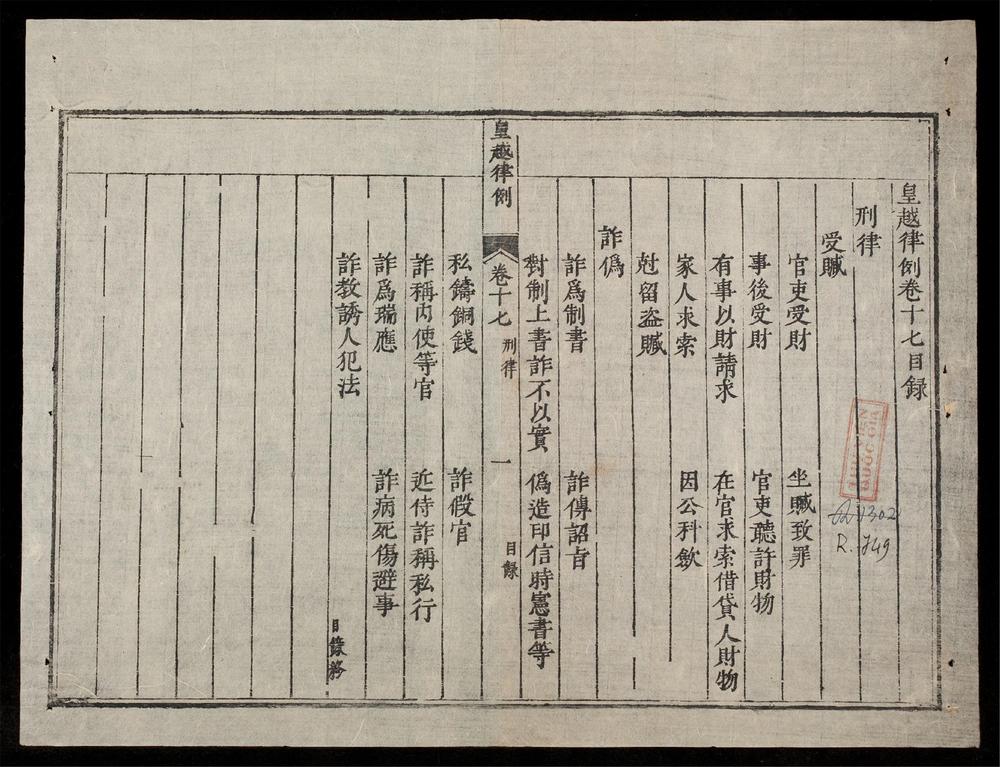 皇越律例卷十七目録
刑律
受贓
官吏受財
坐贓致罪
事後受財
官吏聽許財物
有事以財請求
在官求索借貸人財物
家人求索
因公科歛
尅留盗贓
詐僞
詐爲制書
詐傳詔㫖
對制上書詐不以實
僞造印信時憲書等
皇越律例
卷十七
刑律
一
目録
私鑄銅錢
詐假官
詐稱内使等官
近侍詐稱私行
詐爲瑞應
詐病死傷避事
詐教誘人犯法
目錄終
THƯ VIỆN
QUỐC GIA
R. 749